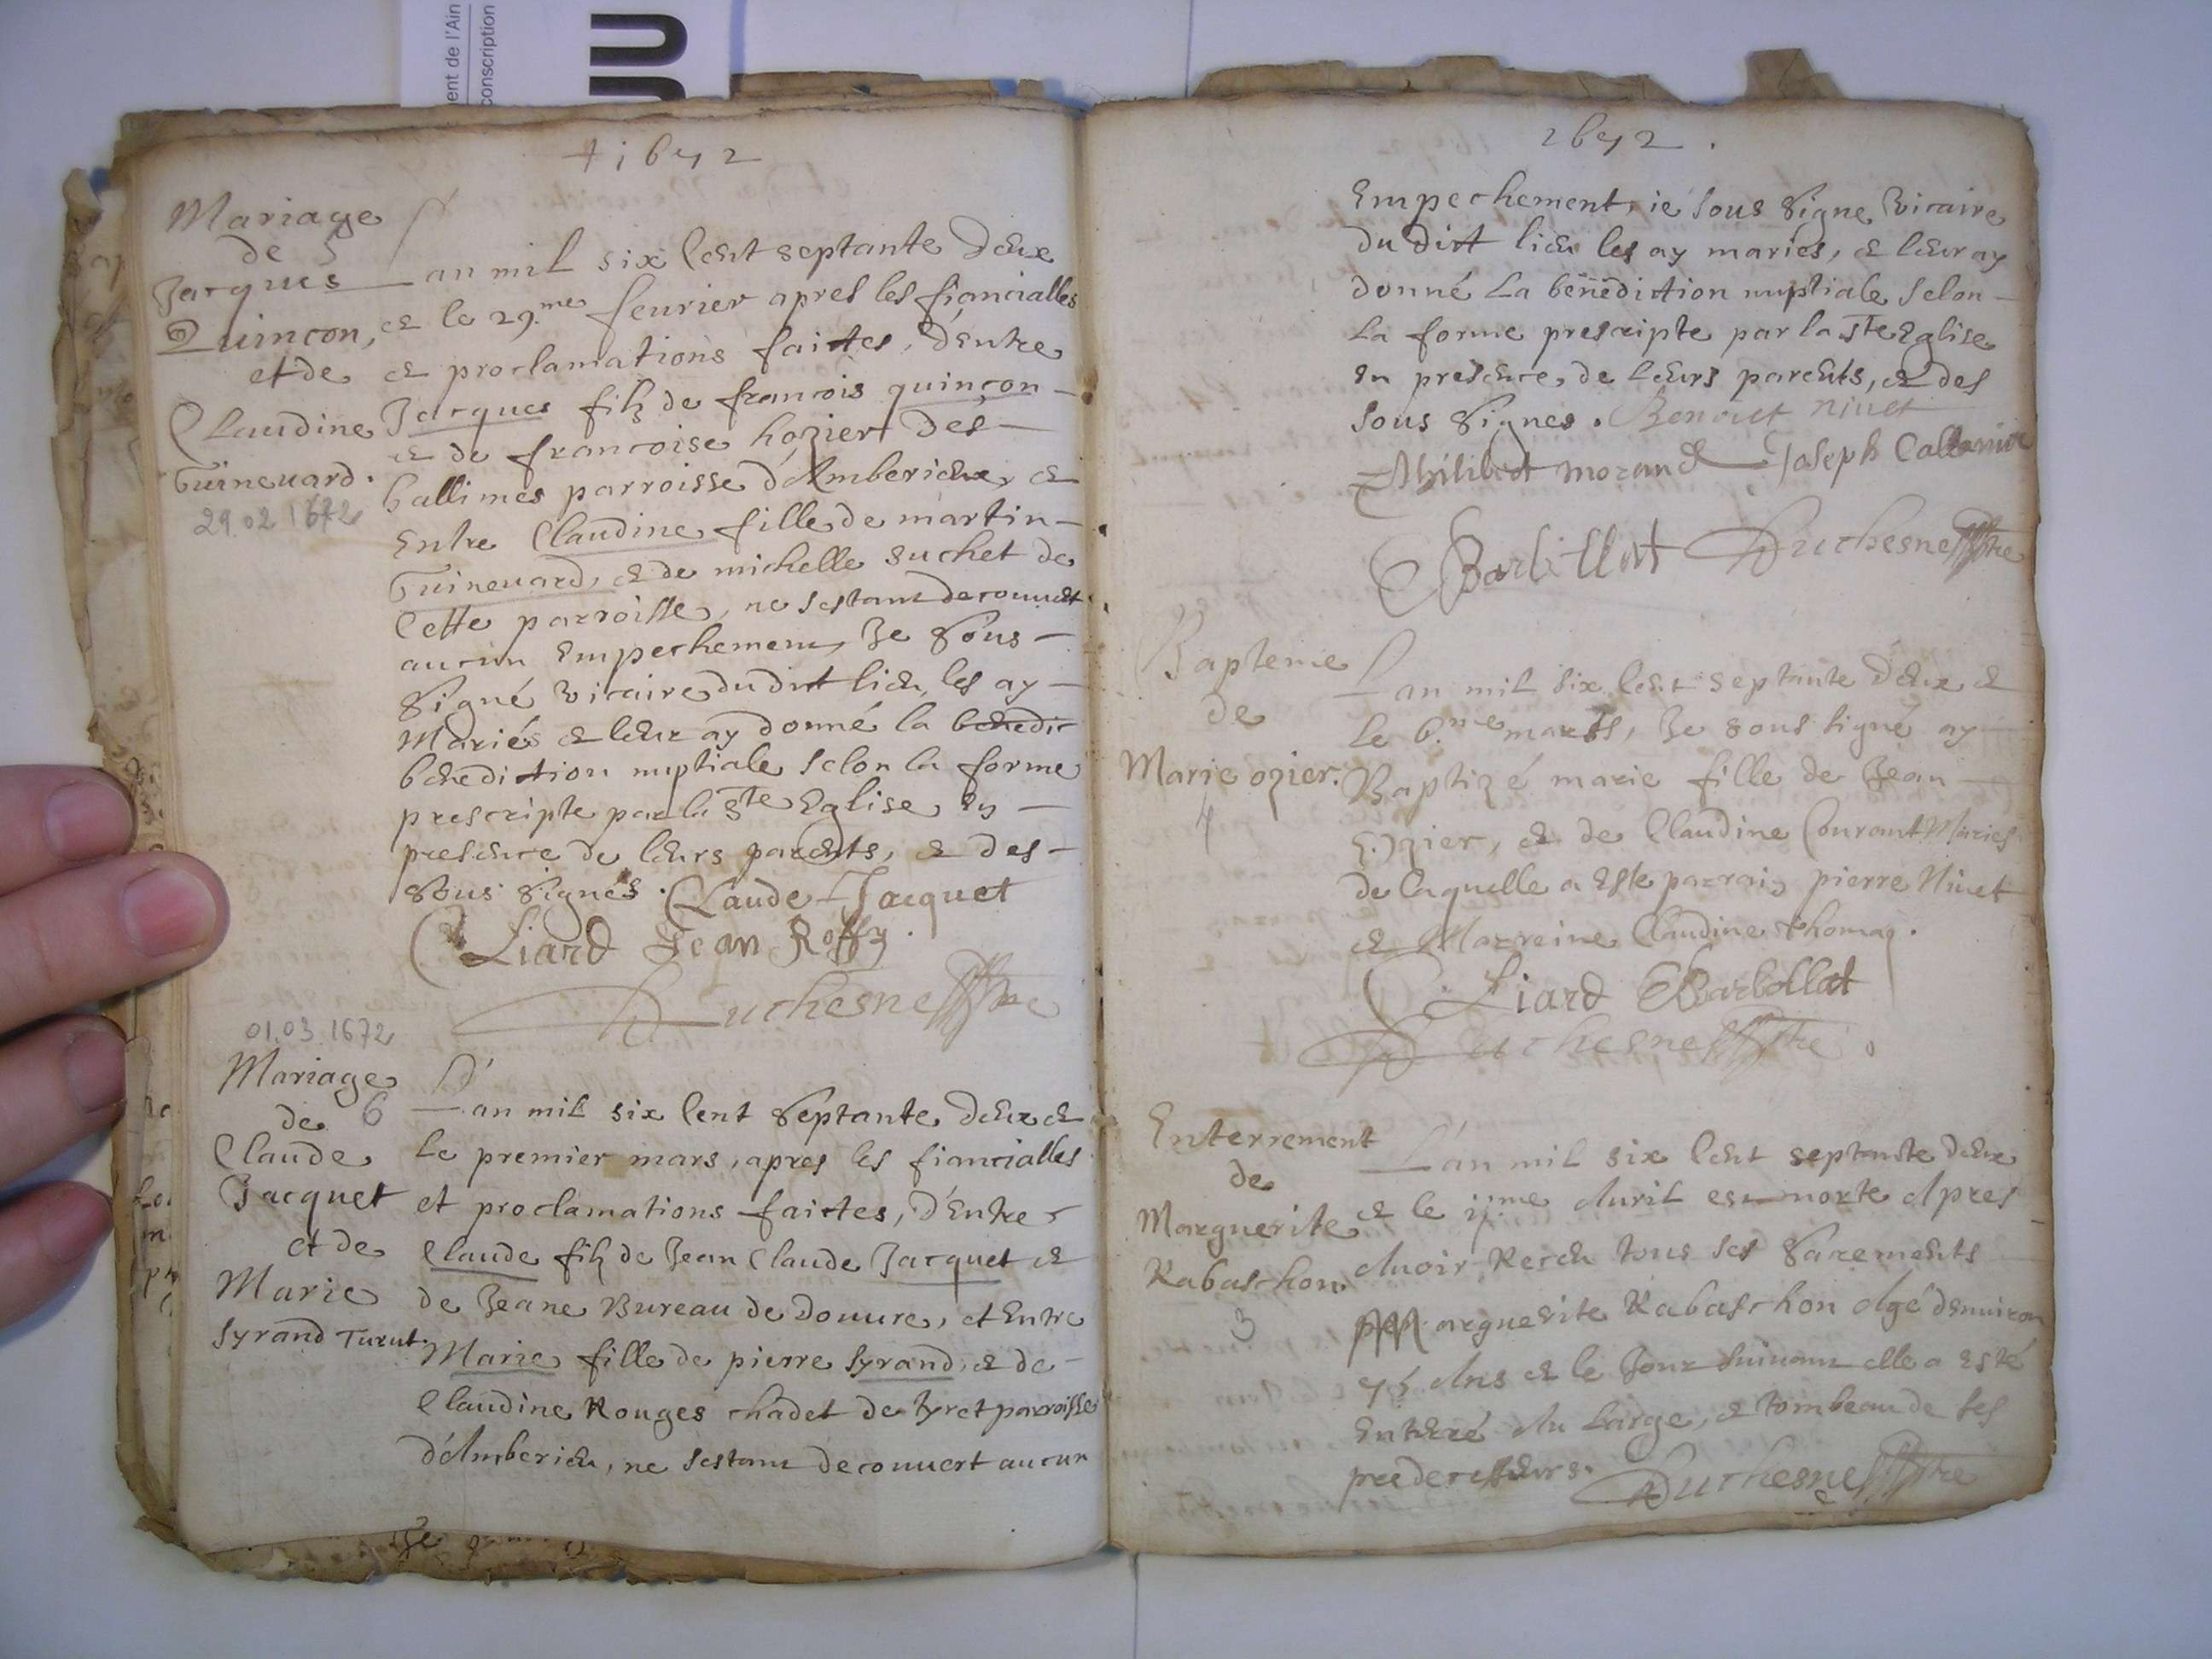 ent de l'Ain
conscription
+ 1672
Mariage
de 5
Jacques
Quincon,
et de
Claudine
Guineuard.
29.02.1672
L'an mil six cent septante deux
et le 29.me feurier apres les fiancialles
et proclamations faictes, d'entre
Jacques filz de francois quincon
et de francoise hozier des
ballimes parroisse d'Amberieux, et
Entre Claudine fille de martin
Guineuard, et de michelle suchet de
Cette parroisse, ne sestant decouuert
aucun Empechement Je sous
signé vicaire du dict lieu, les ay
Mariés et leur ay donné la benedic
benediction nuptiale selon la forme
prescripte par la Ste Eglise en
presence de leurs parents, et des
sous signés. Claude Jacquet
C Liard Jean Roffy.
Duchesne ptre
01.03.1672
Mariage
de 6
Claude
Jacquet
et de
Marie
Syrand Turut.
L'an mil six cent septante deux et
Le premier mars, apres les fiancialles
et proclamations faictes, d'Entre
Claude filz de Jean Claude Jacquet et
de Jeane Bureau de Douure, et Entre
Marie fille de pierre Syrand, et de
Claudine Rouges chadet de tyret parroisse
d'Amberieu, ne sestant decouuert aucun
1672.
Empechement, ie sous signe vicaire
du dict lieu les ay mariés, et leur ay
donné La benediction nuptiale selon
La forme prescripte par la Ste Eglise
en presence de leurs parents, et des
sous signes. Benoict niuet
Philibert morand Joseph
C Barbollat Duchesne ptre
Bapteme
de
Marie ozier.
4
L'an mil six cent septante deux et
Le 6.me mars, Je sous signé ay
Baptizé marie fille de Jean
Ozier, et de Claudine Courant Maries
de laquelle a este parrain pierre Niuet
et Marreine Claudine thomas.
C Liard C Barbollat
Duchesne ptre.
Enterrement
de
Marguerite
Rabaschon.
3
L'an mil six cent septante deux
et le 17.me Auril est morte Apres
Auoir Receu tous ses sacrements
Marguerite Rabaschon Agé denuiron
75 Ans et le Jour suiuant elle a esté
Enterré Au Large, et tombeau de ses
predecesseurs. Duchesne ptre